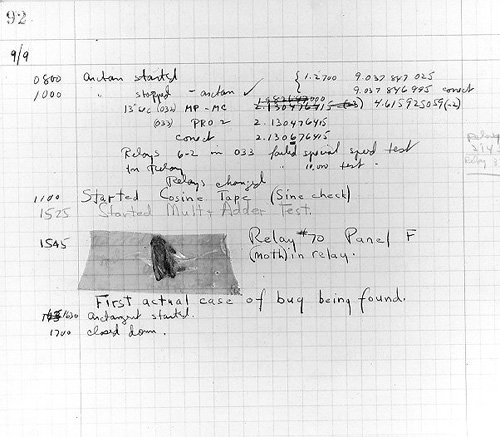 92
9/9
0800 Antan started
1000 " stopped - antan ✓ { 1.2700 9.037 847 025
9.037 846 995 correct
13"uc (032) MP - MC 2.130476415 4.615925059(-2)
(033) PRO 2 2.130476415
correct 2.130676415
Relays 6-2 in 033 failed special speed test
in Relay " 10,000 test.
Relays changed
1100 Started Cosine Tape (Sine check)
1525 Started Mult + Adder Test.
1545 Relay #70 Panel F
(Moth) in relay.
First actual case of bug being found.
1630 antangent started.
1700 closed down.